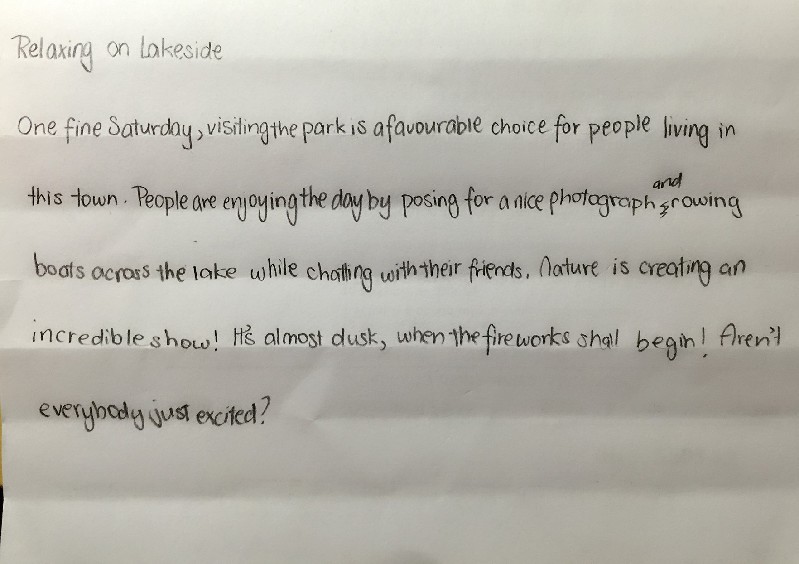 Relaxing on Lakeside
One fine Saturday, visiting the park is a favourable choice for people living in
this town. People are enjoying the day by posing for a nice photograph and rowing
boats across the lake while chatting with their friends. Nature is creating an
incredible show! It's almost dusk, when the fireworks shall begin! Aren't
everybody just excited?